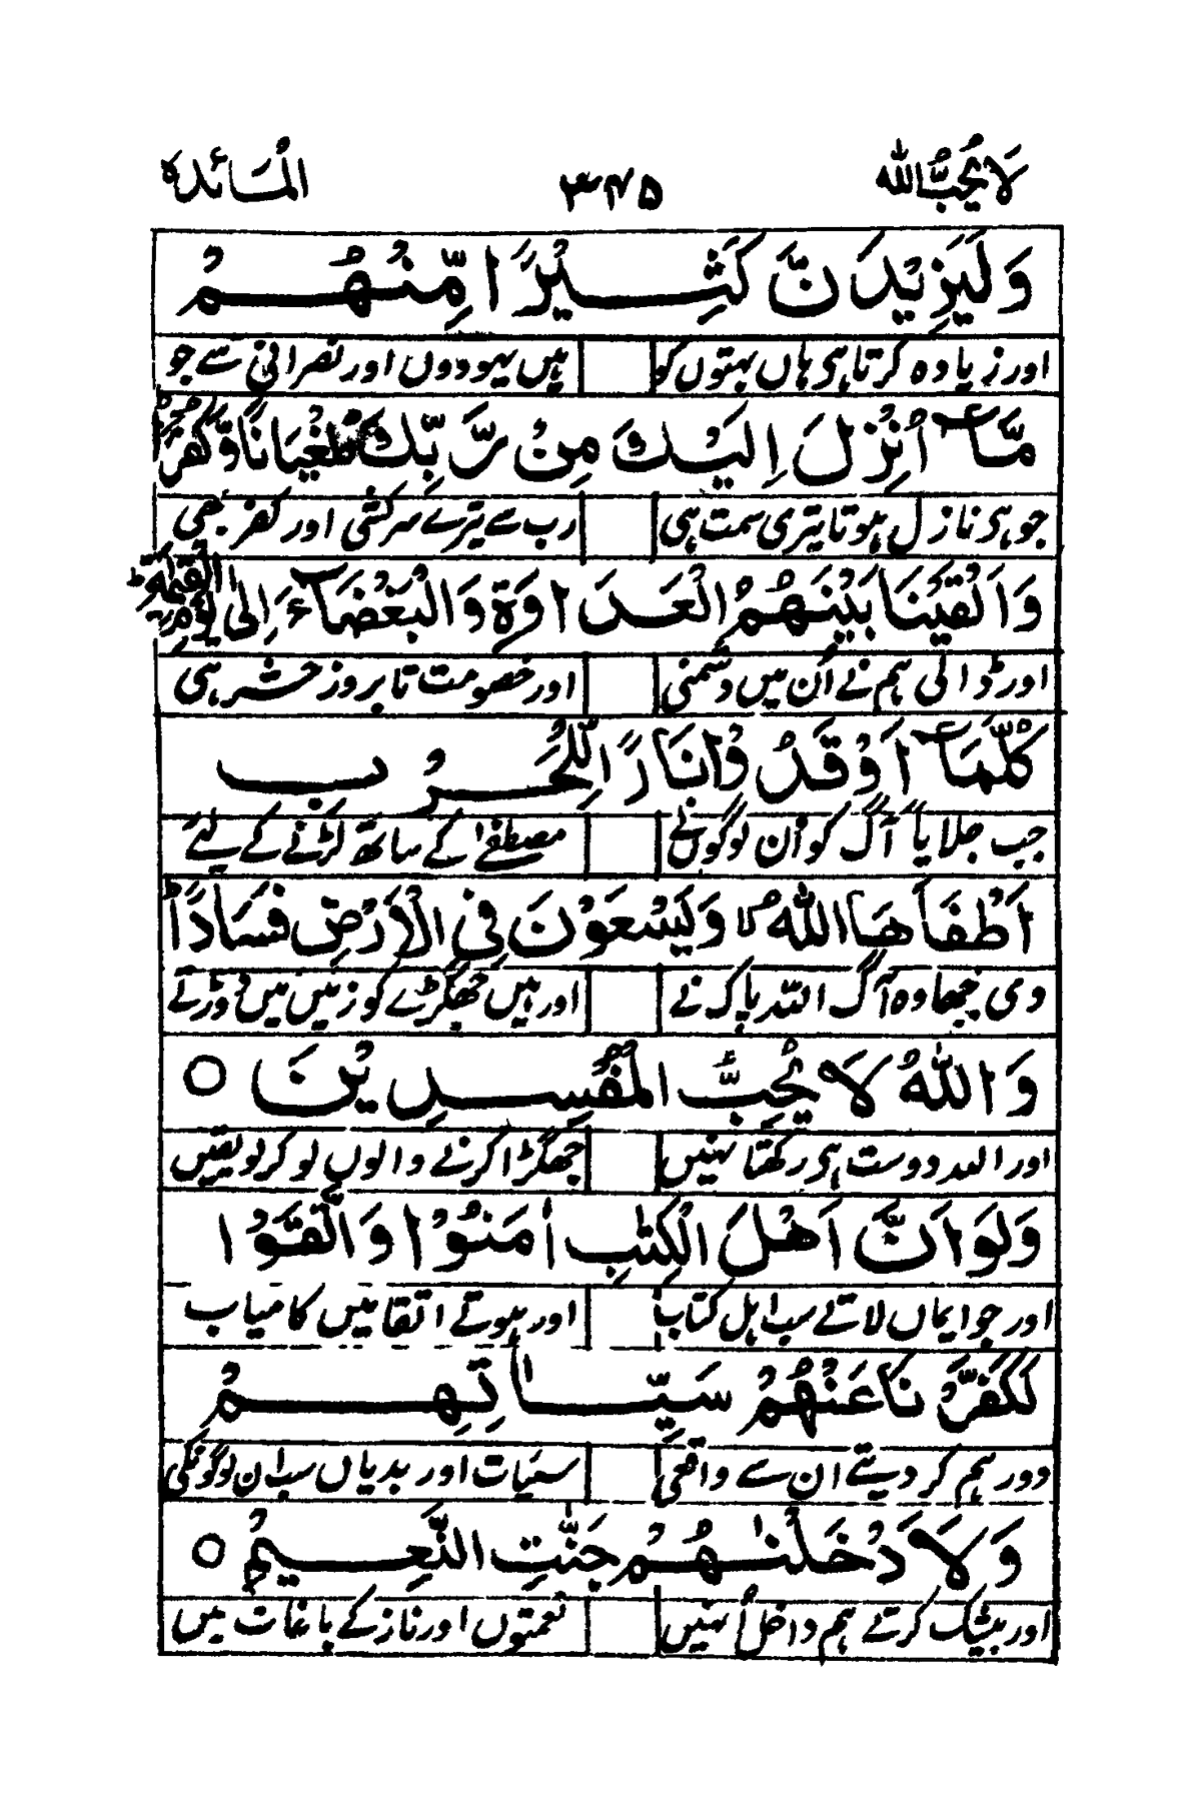 لَا يُحِبُّ اللّٰه ۳۴۵ الْمَائدة
وَلَيَزِيْدَنَّ كَثِيْرًا مِّنْهُمْ
اور زیادہ کرتا ہی ہاں بہتوں کو ہیں یہودوں اور نصرانی سے جو
مَّآ اُنْزِلَ اِلَيْكَ مِنْ رَّبِّكَ طُغْيَانًا وَّكُفْرًا ط
جو ہی نازل ہوتا تیری سمت ہی رب سے تیرے سرکشی اور کفر بھی
وَاَلْقَيْنَا بَيْنَهُمُ الْعَدَاوَةَ وَالْبَغْضَآءَ اِلٰى يَوْمِ الْقِيٰمَةِ ط
اور ڈالی ہم نے اُن میں دشمنی اور خصومت تا بروز حشر ہی
كُلَّمَآ اَوْقَدُوْا نَارًا لِّلْحَرْبِ
جب جلایا آگ کو اُن لوگوں نے مصطفےٰ کے ساتھ لڑنے کے لئے
اَطْفَاَهَا اللّٰهُ لا وَيَسْعَوْنَ فِي الْاَرْضِ فَسَادًا ط
دی بجھا وہ آگ اللہ پاک نے اور ہیں جھگڑے کو زمیں میں دوڑتے
وَاللّٰهُ لَا يُحِبُّ الْمُفْسِدِيْنَ ○
اور اللہ دوست ہی رکھتا نہیں جھگڑا کرنے والوں لو کر لو یقیں
وَلَوْ اَنَّ اَهْلَ الْكِتٰبِ اٰمَنُوْا وَاتَّقَوْا
اور جو ایماں لاتے سب اہل کتاب اور ہوتے اتقا میں کامیاب
لَكَفَّرْنَا عَنْهُمْ سَيِّاٰتِهِمْ
دور ہم کر دیتے ان سے واقعی سئیات اور بدیاں سب ان لوگونکی
وَلَاَدْخَلْنٰهُمْ جَنّٰتِ النَّعِيْمِ ○
اور بیشک کرتے ہم داخل اُنہیں نعمتوں اور ناز کے باغات میں